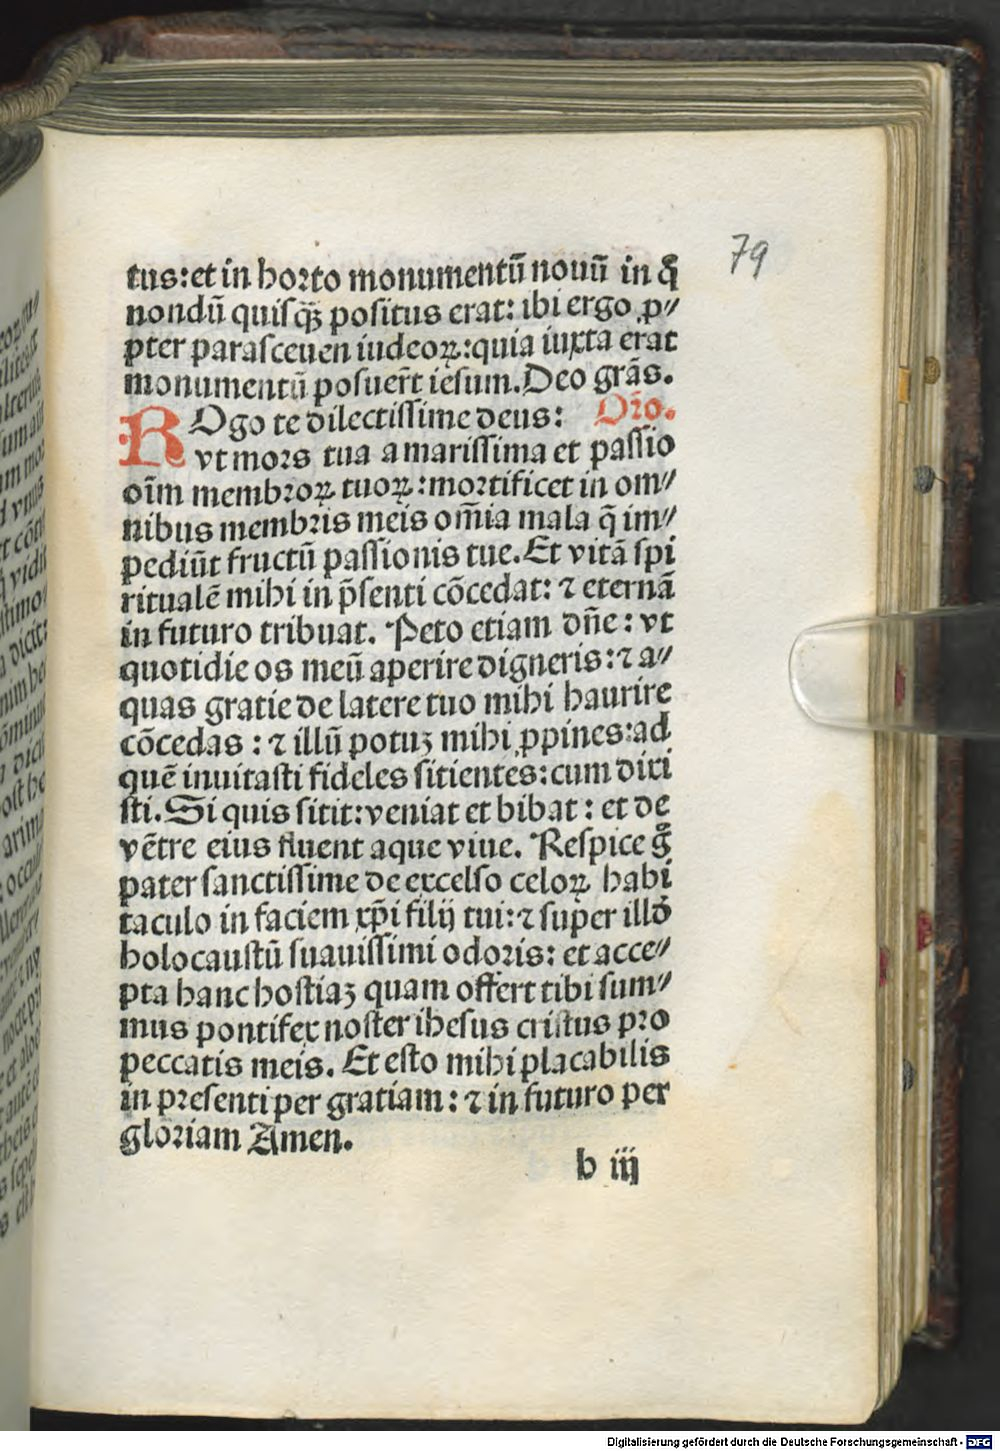 79
tus: et in horto monumentū nouū in q̊
nondū quisqꝫ positus erat: ibi ergo ꝓ⸗
pter parasceuen iudeoꝝ: quia iuxta erat
monumentū posuer̄t iesum. Deo grās.
ROgo te dilectissime deus: Or̄o.
vt mors tua amarissima et passio
oīm membroꝝ tuoꝝ: mortificet in om⸗
nibus membris meis om̄ia mala q̄ im⸗
pediūt fructū passionis tue. Et vitā spi
ritualē mihi in p̄senti cōcedat: ⁊ eternā
in futuro tribuat. Peto etiam dn̄e: vt
quotidie os meū aperire digneris: ⁊ a⸗
quas gratie de latere tuo mihi haurire
cōcedas: ⁊ illū potuꝫ mihi ꝓpines: ad
quē inuitasti fideles sitientes: cum dixi
sti. Si quis sitit: veniat et bibat: et de
vētre eius fluent aque viue. Respice g̊
pater sanctissime de excelso celoꝝ habi
taculo in faciem xp̄i filij tui: ⁊ super illō
holocaustū suauissimi odoris: et acce⸗
pta hanc hostiaꝫ quam offert tibi sum⸗
mus pontifex noster ihesus cristus pro
peccatis meis. Et esto mihi placabilis
in presenti per gratiam: ⁊ in futuro per
gloriam Amen.
b iij
Digitalisierung gefördert durch die Deutsche Forschungsgemeinschaft - DFG